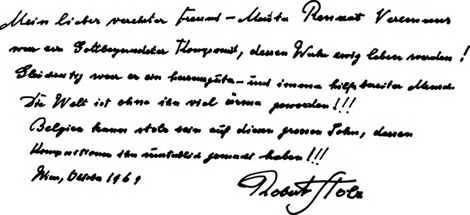 Mein lieber verehrter Freund – Meister Renaat Veremans
war ein Gottbegnadeter Komponist, dessen Werke ewig leben werden!
Gleichzeitig war er ein herzensguter – und immer hilfsbereiter Mensch.
Die Welt ist ohne ihn viel ärmer geworden!!!
Belgien kann stolz sein auf diesen grossen Sohn, dessen
Kompositionen ihn unsterblich gemacht haben!!!
Wien, Oktober 1969
Robert Stolz